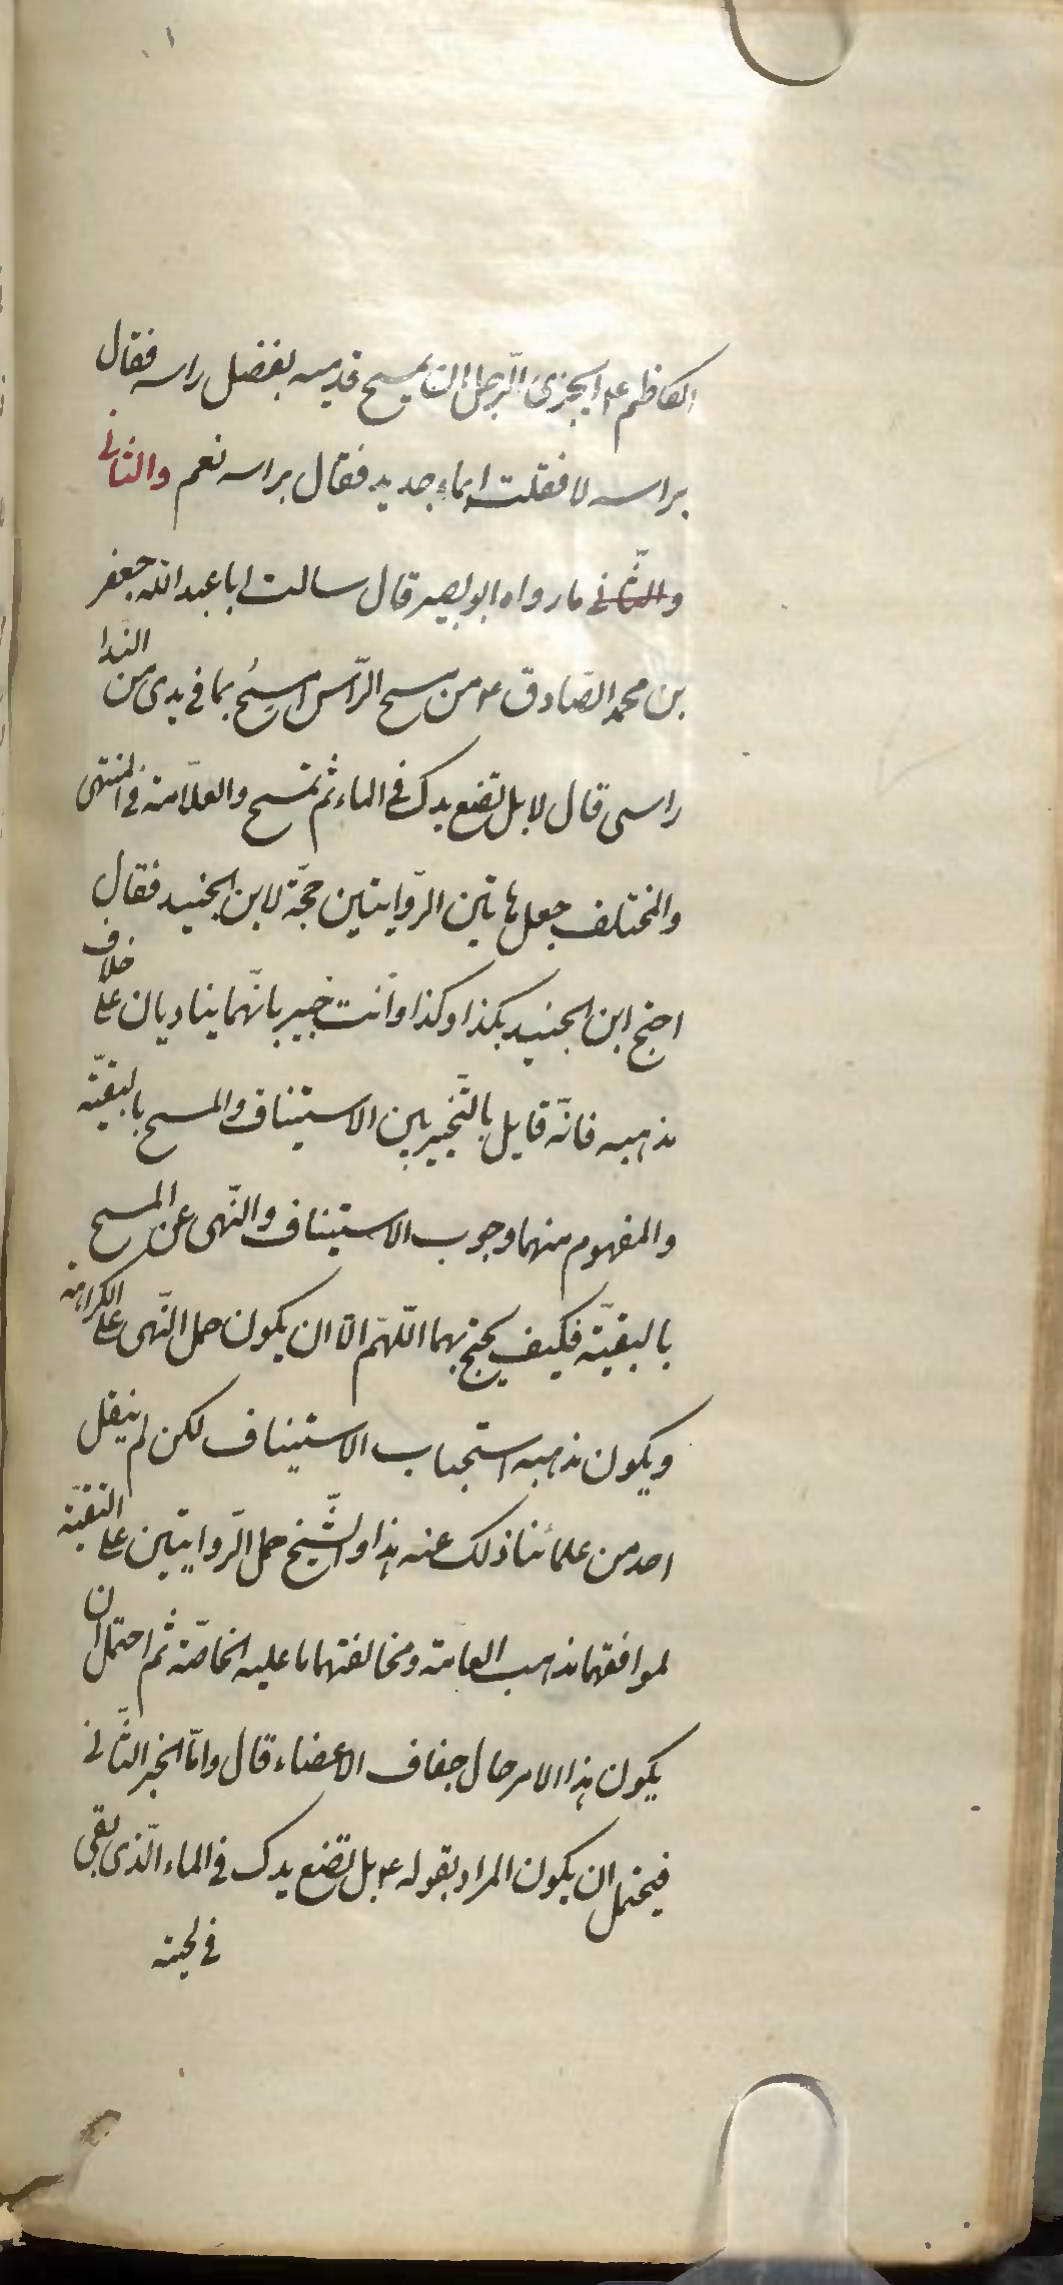 الكاظم ع ايجزى الرّجل ان يمسح قدميه بفضل راسه فقال
براسه لا فقلت ابماء جديد فقال براسه نعم والثانى
والثّانى ما رواه ابو بصير قال سالت ابا عبد الله جعفر
بن محمد الصّادق ع من مسح الرّاس امسح بما فى يدى من النّدا
راسى قال لا بل تضع يدك فى الماء ثم تمسح والعلّامة فى المنتهى
والمختلف جعل هاتين الرّوايتين حجّة لابن الجنيد فقال
احتج ابن الجنيد بكذا وكذا وانت خبير بانّهما يناديان على خلاف
مذهبه فانّه قايل بالتّخيير بين الاستيناف والمسح بالبقيّة
والمفهوم منهما وجوب الاستيناف والنّهى عن المسح
بالبقيّة فكيف يحتج بهما اللّهم الّا ان يكون حمل النّهى على الكراهة
ويكون مذهبه استحباب الاستيناف لكن لم ينقل
احد من علمائنا ذلك عنه هذا والشّيخ حمل الرّوايتين على التقيّة
لموافقتهما مذهب العامّة ومخالفتهما ما عليه الخاصّة ثم احتمل ان
يكون هذا الامر حال جفاف الاعضاء قال وامّا الخبر الثّانى
فيحتمل ان يكون المراد بقوله ع بل تضع يدك فى الماء الّذى بقى
فى لحيته